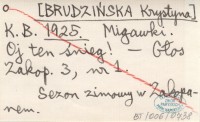 [BRUDZIŃSKA Krystyna]
K. B. 1925. Migawki.
Oj ten śnieg! — Głos
Zakop. 3, nr 1.
Sezon zimowy w Zakopa-
nem.